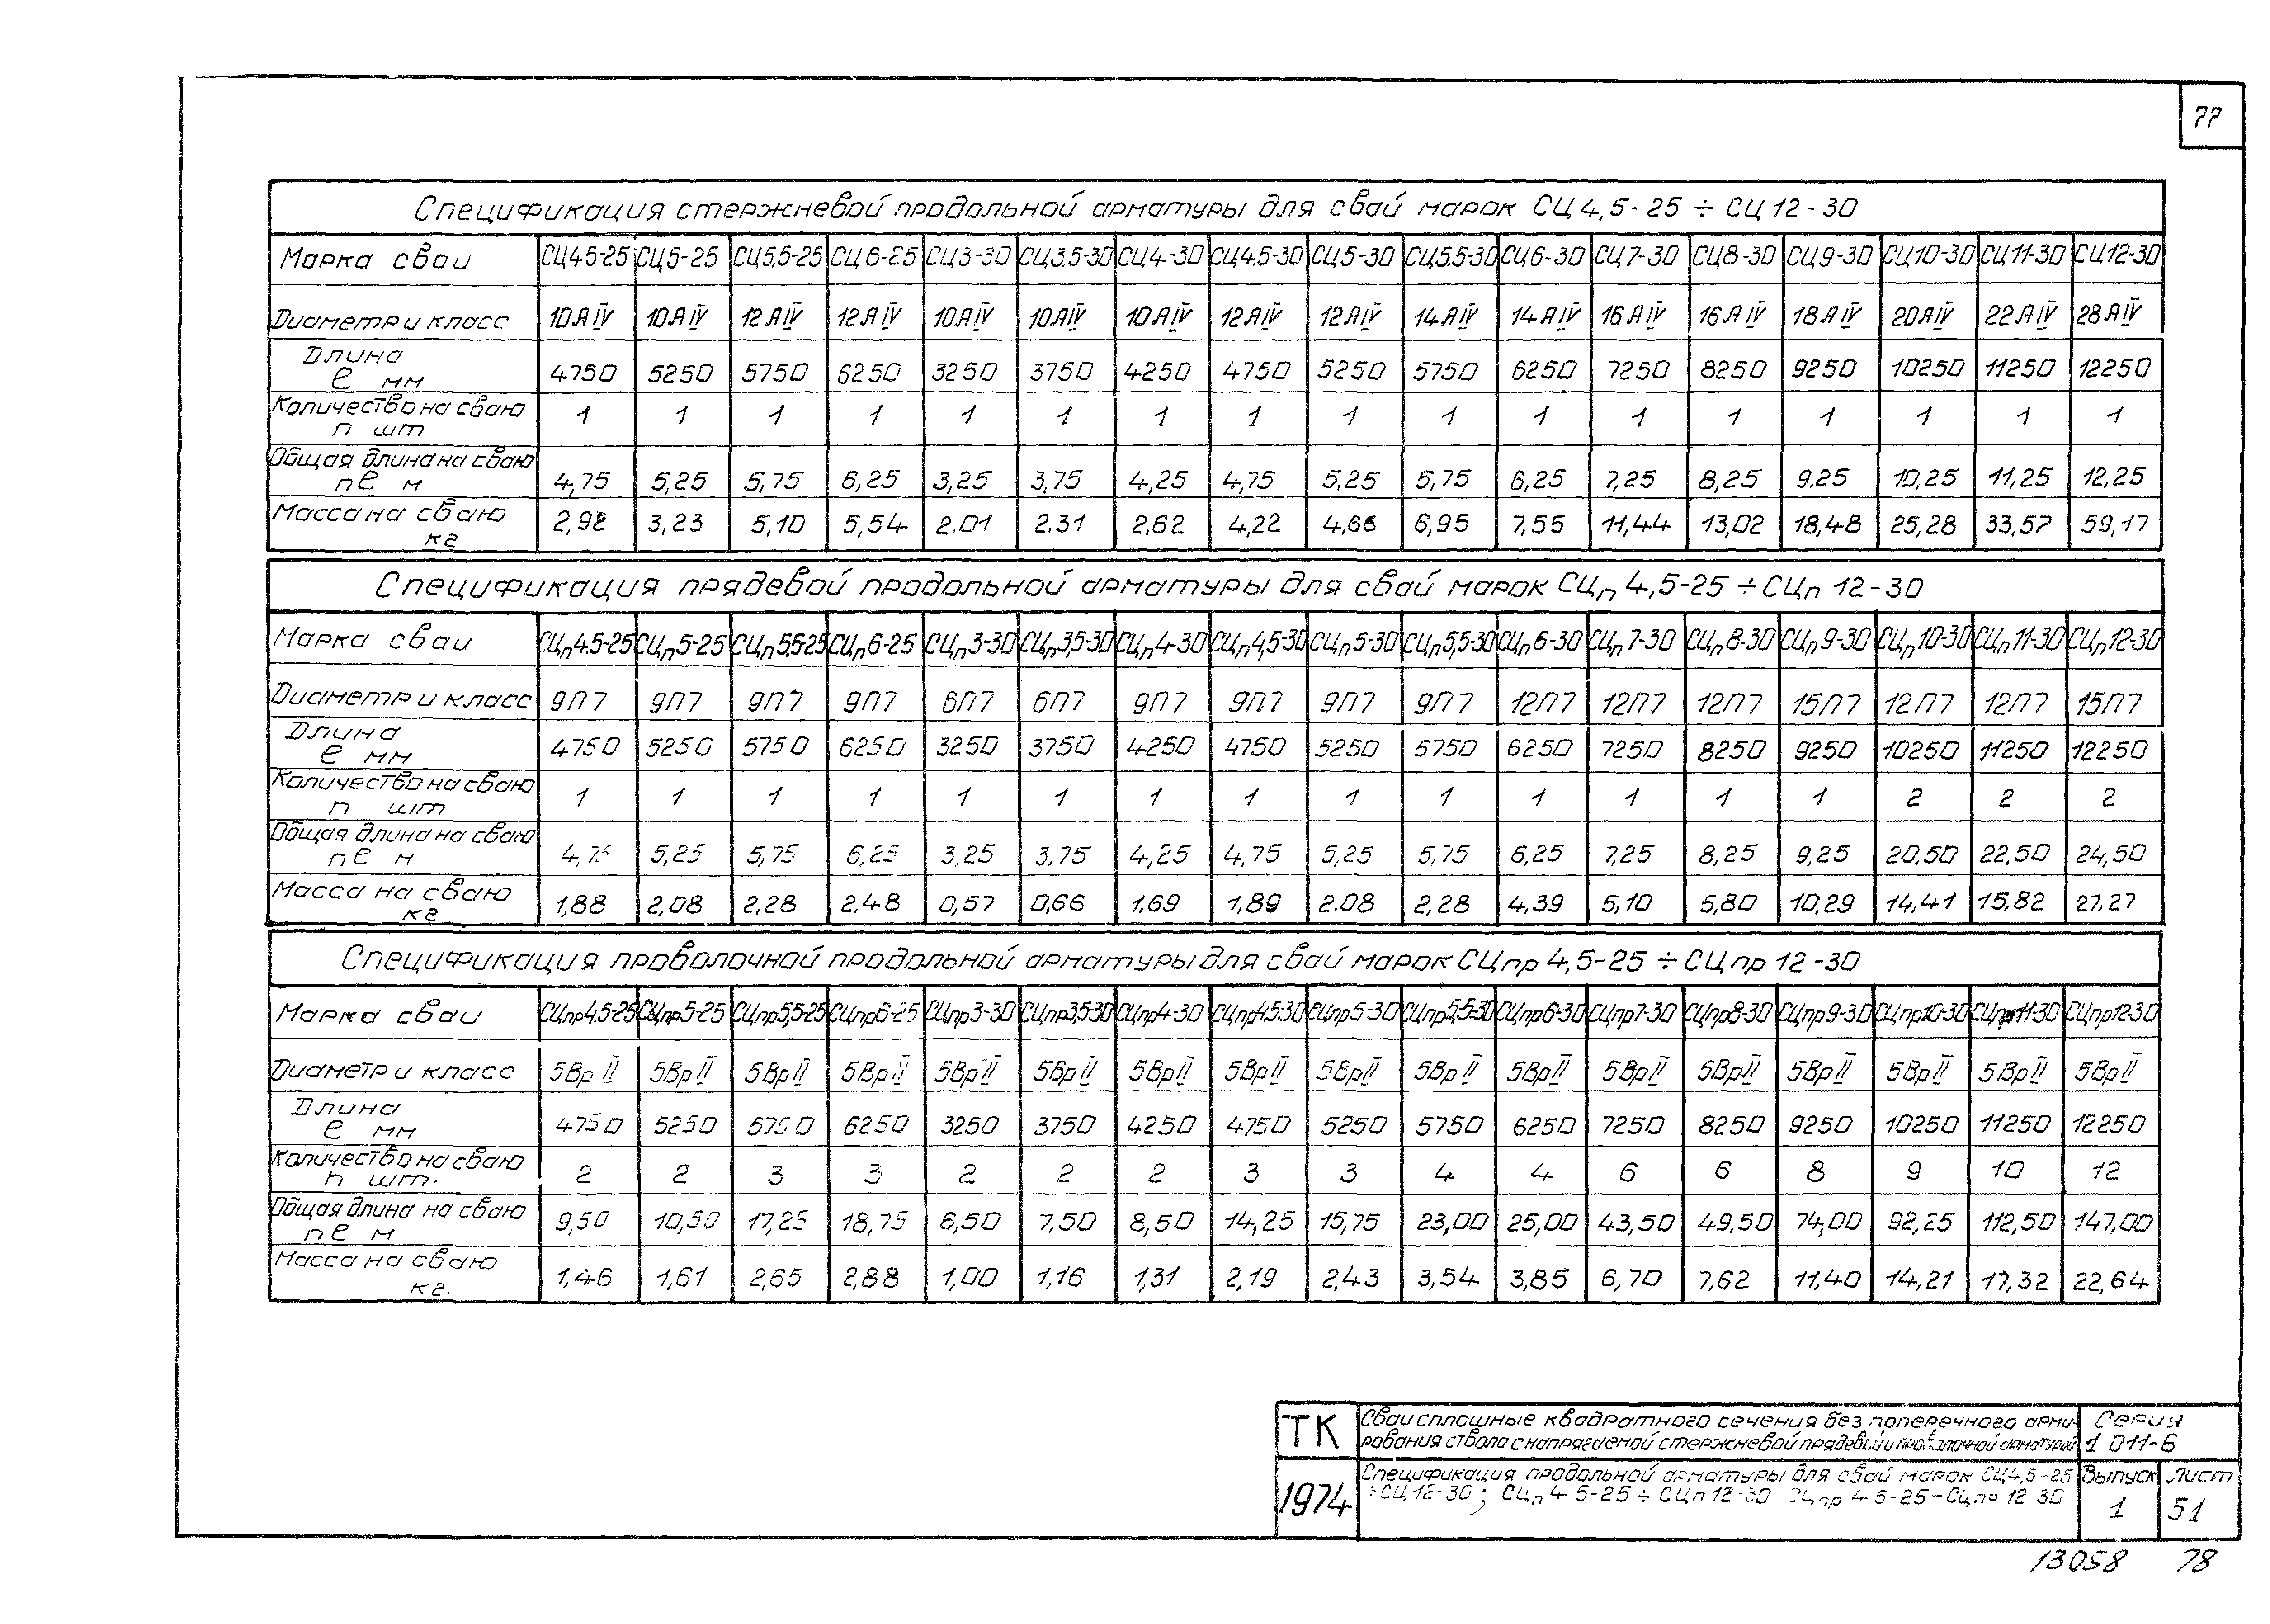 77
Спецификация стержневой продольной арматуры для свай марок СЦ 4,5-25 ÷ СЦ 12-30
Марка сваи СЦ4.5-25 СЦ5-25 СЦ5,5-25 СЦ6-25 СЦ3-30 СЦ3,5-30 СЦ4-30 СЦ4,5-30 СЦ5-30 СЦ5,5-30 СЦ6-30 СЦ7-30 СЦ8-30 СЦ9-30 СЦ10-30 СЦ11-30 СЦ12-30
Диаметр и класс 10АIV 10АIV 12АIV 12АIV 10АIV 10АIV 10АIV 12АIV 12АIV 14АIV 14АIV 16АIV 16АIV 18АIV 20АIV 22АIV 28АIV
Длина
ℓ мм 4750 5250 5750 6250 3250 3750 4250 4750 5250 5750 6250 7250 8250 9250 10250 11250 12250
Количество на сваю
n шт 1 1 1 1 1 1 1 1 1 1 1 1 1 1 1 1 1
Общая длина на сваю
nℓ м 4,75 5,25 5,75 6,25 3,25 3,75 4,25 4,75 5,25 5,75 6,25 7,25 8,25 9.25 10,25 11,25 12,25
Масса на сваю
кг 2,92 3,23 5,10 5,54 2.01 2.31 2,62 4,22 4,66 6,95 7,55 11,44 13,02 18,48 25,28 33,57 59,17
Спецификация прядевой продольной арматуры для свай марок СЦп 4,5-25 ÷ СЦп 12-30
Марка сваи СЦп4.5-25 СЦп5-25 СЦп5,5-25 СЦп6-25 СЦп3-30 СЦп3,5-30 СЦп4-30 СЦп4,5-30 СЦп5-30 СЦп5,5-30 СЦп6-30 СЦп7-30 СЦп8-30 СЦп9-30 СЦп10-30 СЦп11-30 СЦп12-30
Диаметр и класс 9П7 9П7 9П7 9П7 6П7 6П7 9П7 9П7 9П7 9П7 12П7 12П7 12П7 15П7 12П7 12П7 15П7
Длина
ℓ мм 4750 5250 5750 6250 3250 3750 4250 4750 5250 5750 6250 7250 8250 9250 10250 11250 12250
Количество на сваю
n шт 1 1 1 1 1 1 1 1 1 1 1 1 1 1 2 2 2
Общая длина на сваю
nℓ м 4,75 5,25 5,75 6,25 3,25 3,75 4,25 4,75 5,25 5,75 6,25 7,25 8,25 9,25 20,50 22,50 24,50
Масса на сваю
кг 1,88 2,08 2,28 2,48 0,57 0,66 1.69 1,89 2.08 2,28 4,39 5,10 5,80 10,29 14,41 15,82 27,27
Спецификация проволочной продольной арматуры для свай марок СЦпр 4,5-25 ÷ СЦпр 12-30
Марка сваи СЦпр4,5-25 СЦпр5-25 СЦпр5,5-25 СЦпр6-25 СЦпр3-30 СЦпр3,5-30 СЦпр4-30 СЦпр4,5-30 СЦпр5-30 СЦпр5,5-30 СЦпр6-30 СЦпр7-30 СЦпр8-30 СЦпр9-30 СЦпр10-30 СЦпр11-30 СЦпр12-30
Диаметр и класс 5ВрII 5ВрII 5ВрII 5ВрII 5ВрII 5ВрII 5ВрII 5ВрII 5ВрII 5ВрII 5ВрII 5ВрII 5ВрII 5ВрII 5ВрII 5ВрII 5ВрII
Длина
ℓ мм 4750 5250 5750 6250 3250 3750 4250 4750 5250 5750 6250 7250 8250 9250 10250 11250 12250
Количество на сваю
n шт. 2 2 3 3 2 2 2 3 3 4 4 6 6 8 9 10 12
Общая длина на сваю
nℓ м 9,50 10,50 17,25 18,75 6,50 7,50 8,50 14,25 15,75 23,00 25,00 43,50 49,50 74,00 92,25 112,50 147,00
Масса на сваю
кг. 1,46 1,61 2,65 2,88 1,00 1,16 1,31 2,19 2,43 3,54 3,85 6,70 7,62 11,40 14,21 17,32 22,64
ТК
Сваи сплошные квадратного сечения без поперечного арми-
рования ствола с напрягаемой стержневой прядевой и проволочной арматурой
Серия
1 011-6
1974
Спецификация продольной арматуры для свай марок СЦ4,5-25
÷СЦ12-30; СЦп 4 5-25 ÷ СЦп 12-30 СЦпр 4 5-25 – СЦпр 12 30
Выпуск
1
Лист
51
13058 78